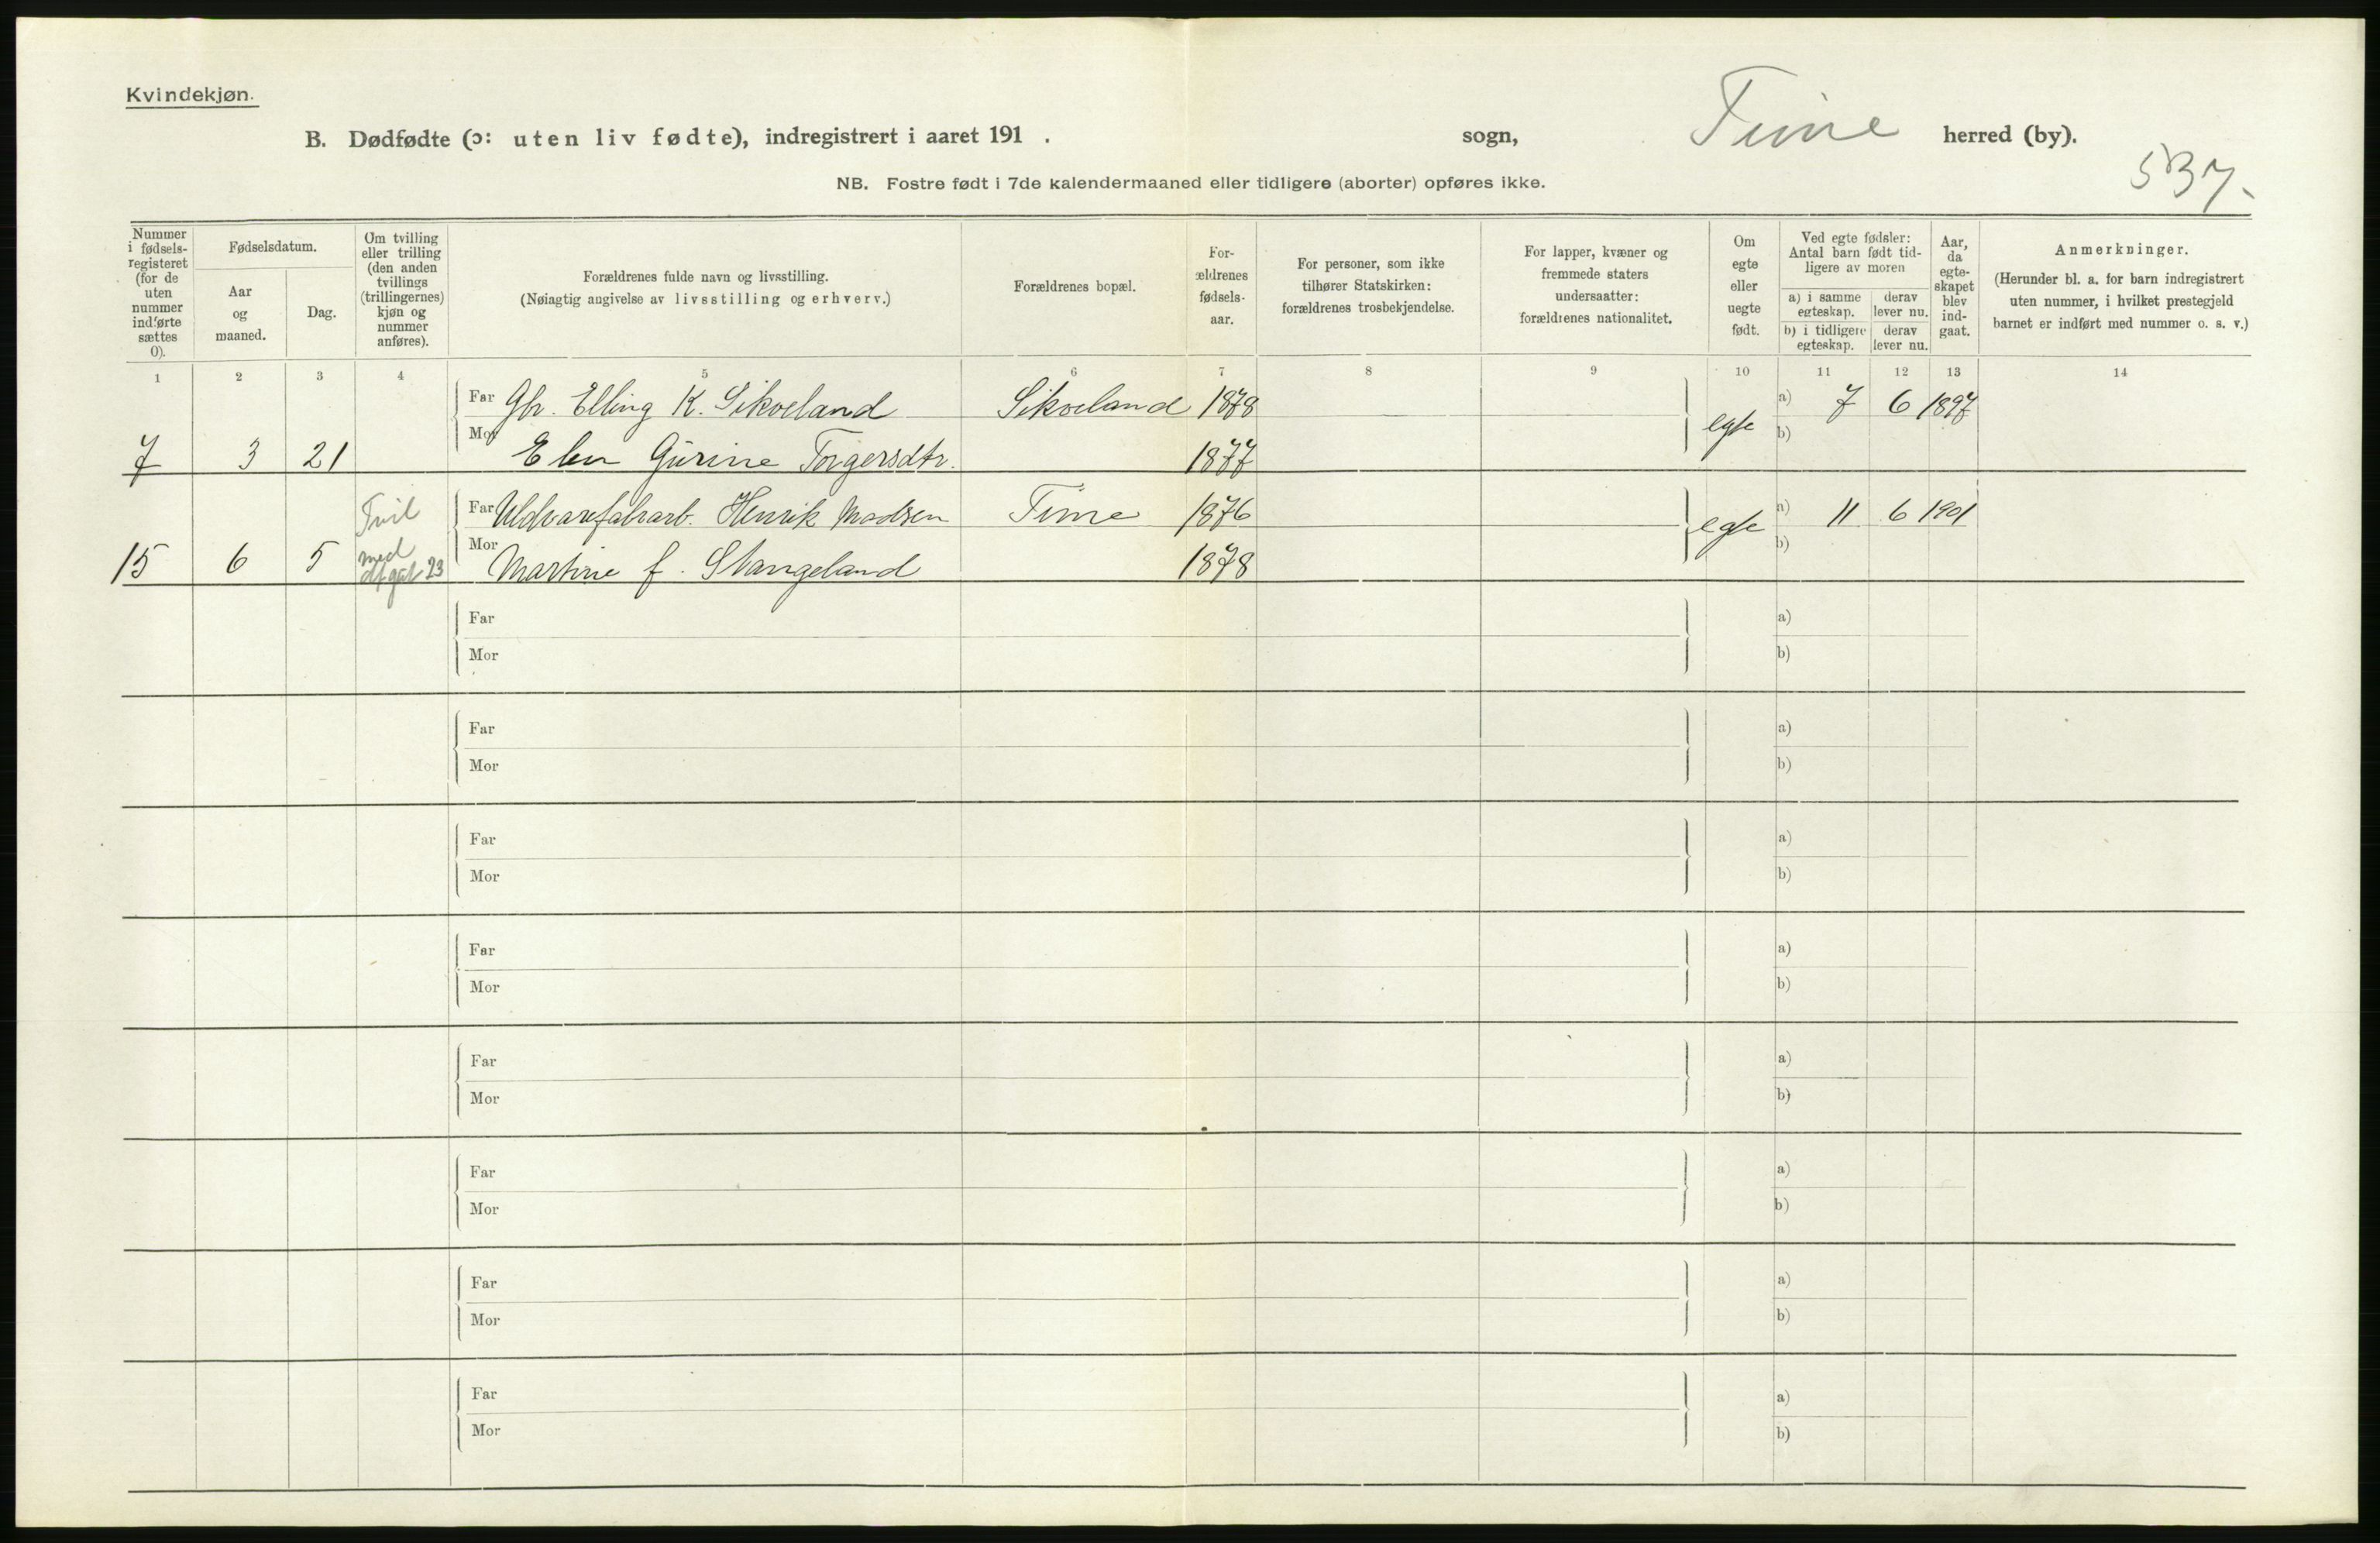 Kvindekjøn.
B. Dødfødte (ɔ: uten liv fødte), indregistrert i aaret 191 . sogn, Time herred (by).
537.
NB. Fostre født i 7de kalendermaaned eller tidligere (aborter) opføres ikke.
Nummer i fødsels-registeret (for de uten nummer indførte sættes 0).
Fødselsdatum.
Aar og maaned.
Dag.
Om tvilling eller trilling (den anden tvillings (trillingernes) kjøn og nummer anføres).
Forældrenes fulde navn og livsstilling.
(Nøiagtig angivelse av livsstilling og erhverv.)
Forældrenes bopæl.
For-ældrenes fødsels-aar.
For personer, som ikke tilhører Statskirken: forældrenes trosbekjendelse.
For lapper, kvæner og fremmede staters undersaatter: forældrenes nationalitet.
Om egte eller uegte født.
Ved egte fødsler: Antal barn født tid-ligere av moren
a) i samme egteskap. derav lever nu.
b) i tidligere egteskap. derav lever nu.
Aar, da egte-skapet blev ind-gaat.
Anmerkninger.
(Herunder bl. a. for barn indregistrert uten nummer, i hvilket prestegjeld barnet er indført med nummer o. s. v.)
1 2 3 4 5 6 7 8 9 10 11 12 13 14
Far Gbr. Elling K. Sikveland Sikveland 1878 egte a) 7 6 1897
7 3 21 Mor Elen Gurine Torgersdtr. 1877 b)
Tvil
Far Uldvarefabrarb. Henrik Madsen Time 1876 egte a) 11 6 1901
15 6 5 med 23 Mor Martine f. Stangeland 1878 b)
Far a)
Mor b)
Far a)
Mor b)
Far a)
Mor b)
Far a)
Mor b)
Far a)
Mor b)
Far a)
Mor b)
Far a)
Mor b)
Far a)
Mor b)